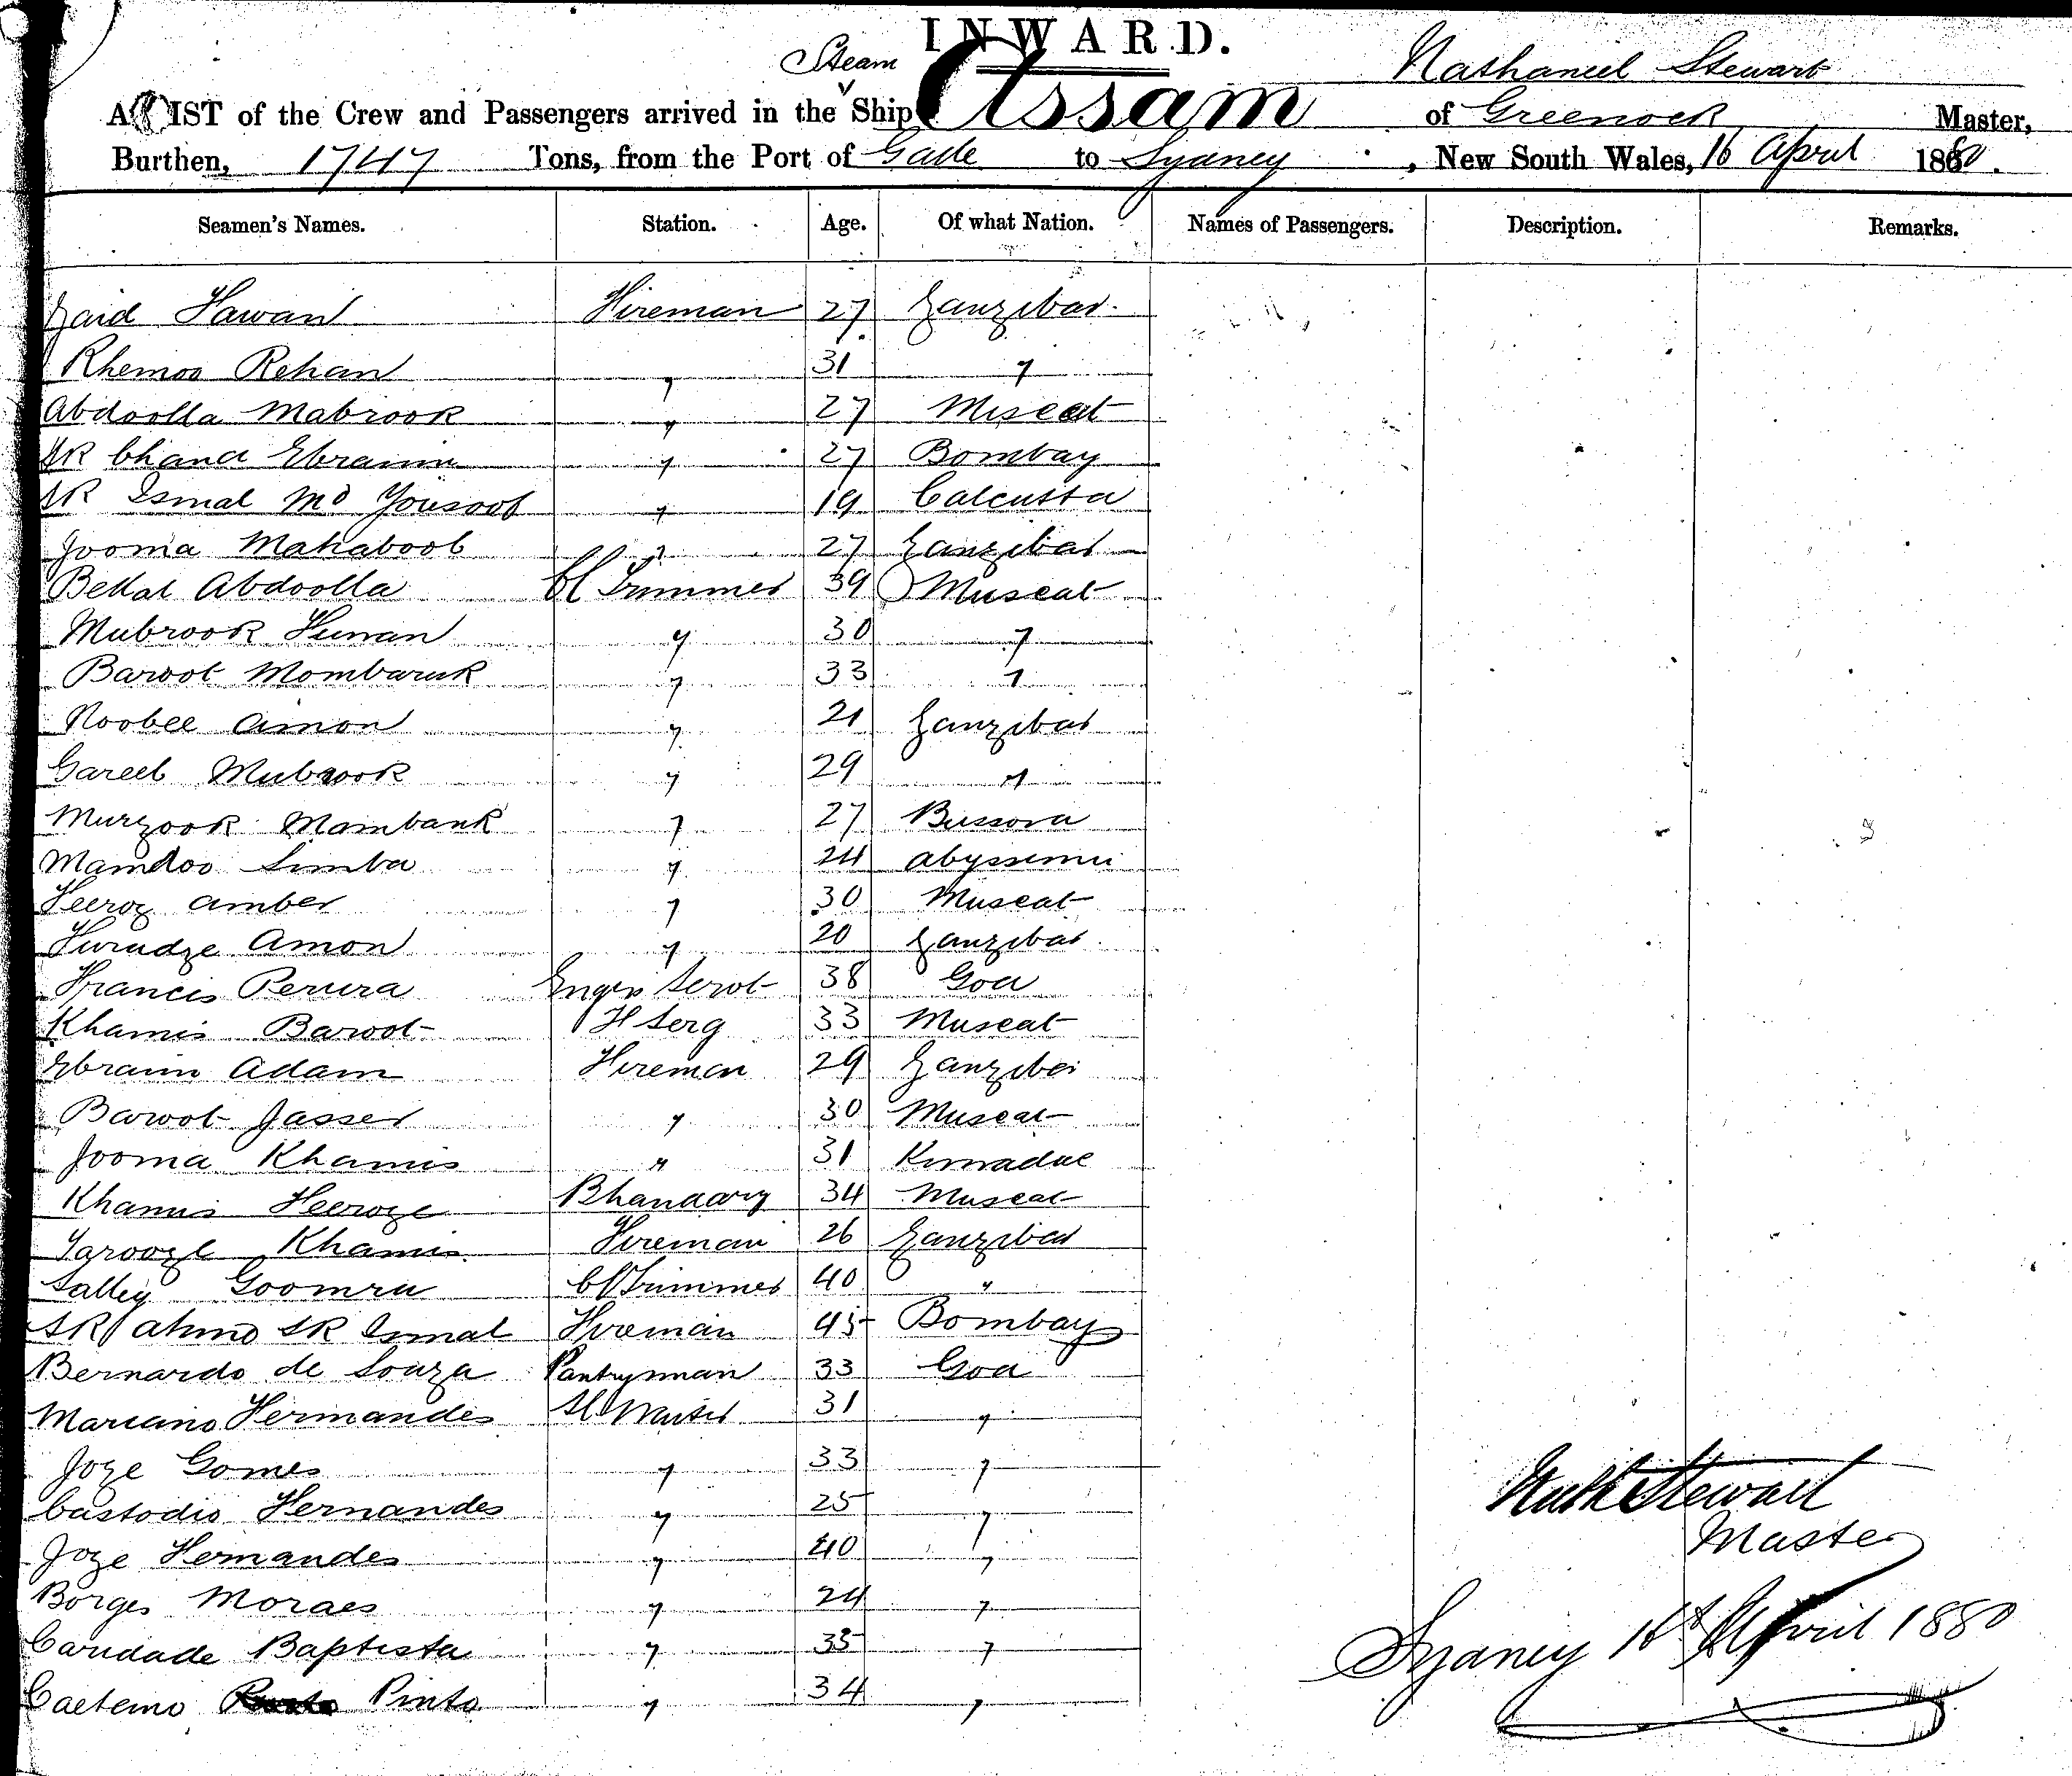 INWARD.
Steam Nathaniel Stewart
A LIST of the Crew and Passengers arrived in the Ship Assam of Greenock Master,
Burthen, 1747 Tons, from the Port of Galle to Sydney, New South Wales, 16 April 1880.
Seamen's Names. Station. Age. Of what Nation. Names of Passengers. Description. Remarks.
Zaid Fawan Fireman 27 Zanzibar
Rhemoo Rehan " 31 "
Abdoolla Mabrook " 27 Muscat
SK Chand Ebraim " 27 Bombay
SK Ismal Md Yousoob " 19 Calcutta
Jooma Mahaboob " 27 Zanzibar
Bellal Abdoolla Cl Trimmer 39 Muscat
Mubrook Funan " 30 "
Baroot Mombaruk " 33 "
Noobee Amon " 21 Zanzibar
Gareeb Mubrook " 29 "
Murzook Mambank " 27 Bussora
Mamdoo Simba " 24 Abyssinni
Feeroz Amber " 30 Muscat
Furudze Amon " 20 Zanzibar
Francis Perura Engrs Servt 38 Goa
Khamis Baroot F Serg 33 Muscat
Ebraim Adam Fireman 29 Zanzibar
Baroot Jasser " 30 Muscat
Jooma Khamis " 31
Khamis Feeroze Bhandary 34 Muscat
Farooze Khamis Fireman 26 Zanzibar
Salley Goomra Cl Trimmer 40 "
SK Ahmd SK Ismal Fireman 45 Bombay
Bernardo de Souza Pantryman 33 Goa
Mariano Fernandes 31 "
Joze Gomes " 33 "
Custodio Fernandes " 25 "
Joze Fernandes " 40 "
Borges Moraes " 24 "
Caridade Baptista " 35 "
Caetano Pinto " 34 "
Nath Stewart
Master
Sydney 16th April 1880